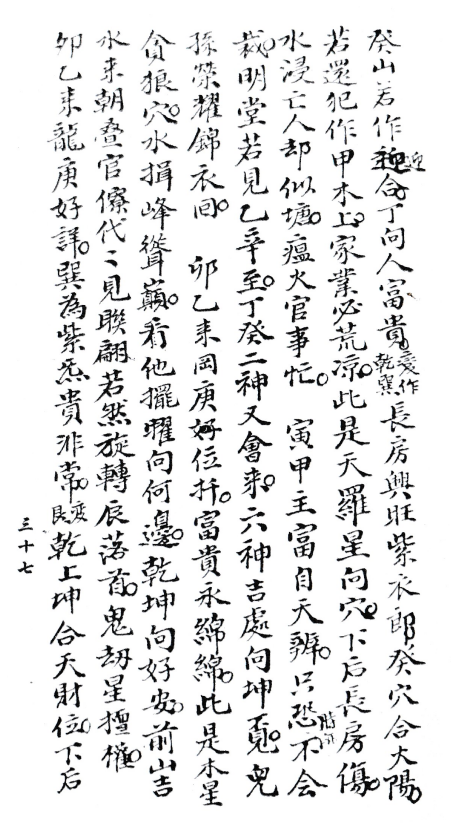 癸山若作迎合丁向人富貴長房興旺紫衣郎癸穴合太陽
若還犯作甲木上家業必荒凉此是天羅星向穴下后長房傷
水浸亡人却似塘瘟火官事忙　寅甲主富自天辨只恐不会
裁明堂若見乙辛至丁癸二神又會来六神吉處向坤覓兒
孫榮耀錦衣回　卯乙来岡庚好位扦富貴永綿綿此是木星
貪狼穴水揖峰聳巔看他擺曜向何邊乾坤向好安前山吉
水来朝叠官僚代〻見聯翩若然旋轉辰落首鬼劫星擅權
卯乙来龍庚好詳巽為紫炁貴非常乾上坤合天財位下后
迎
変作乾巽
三十七